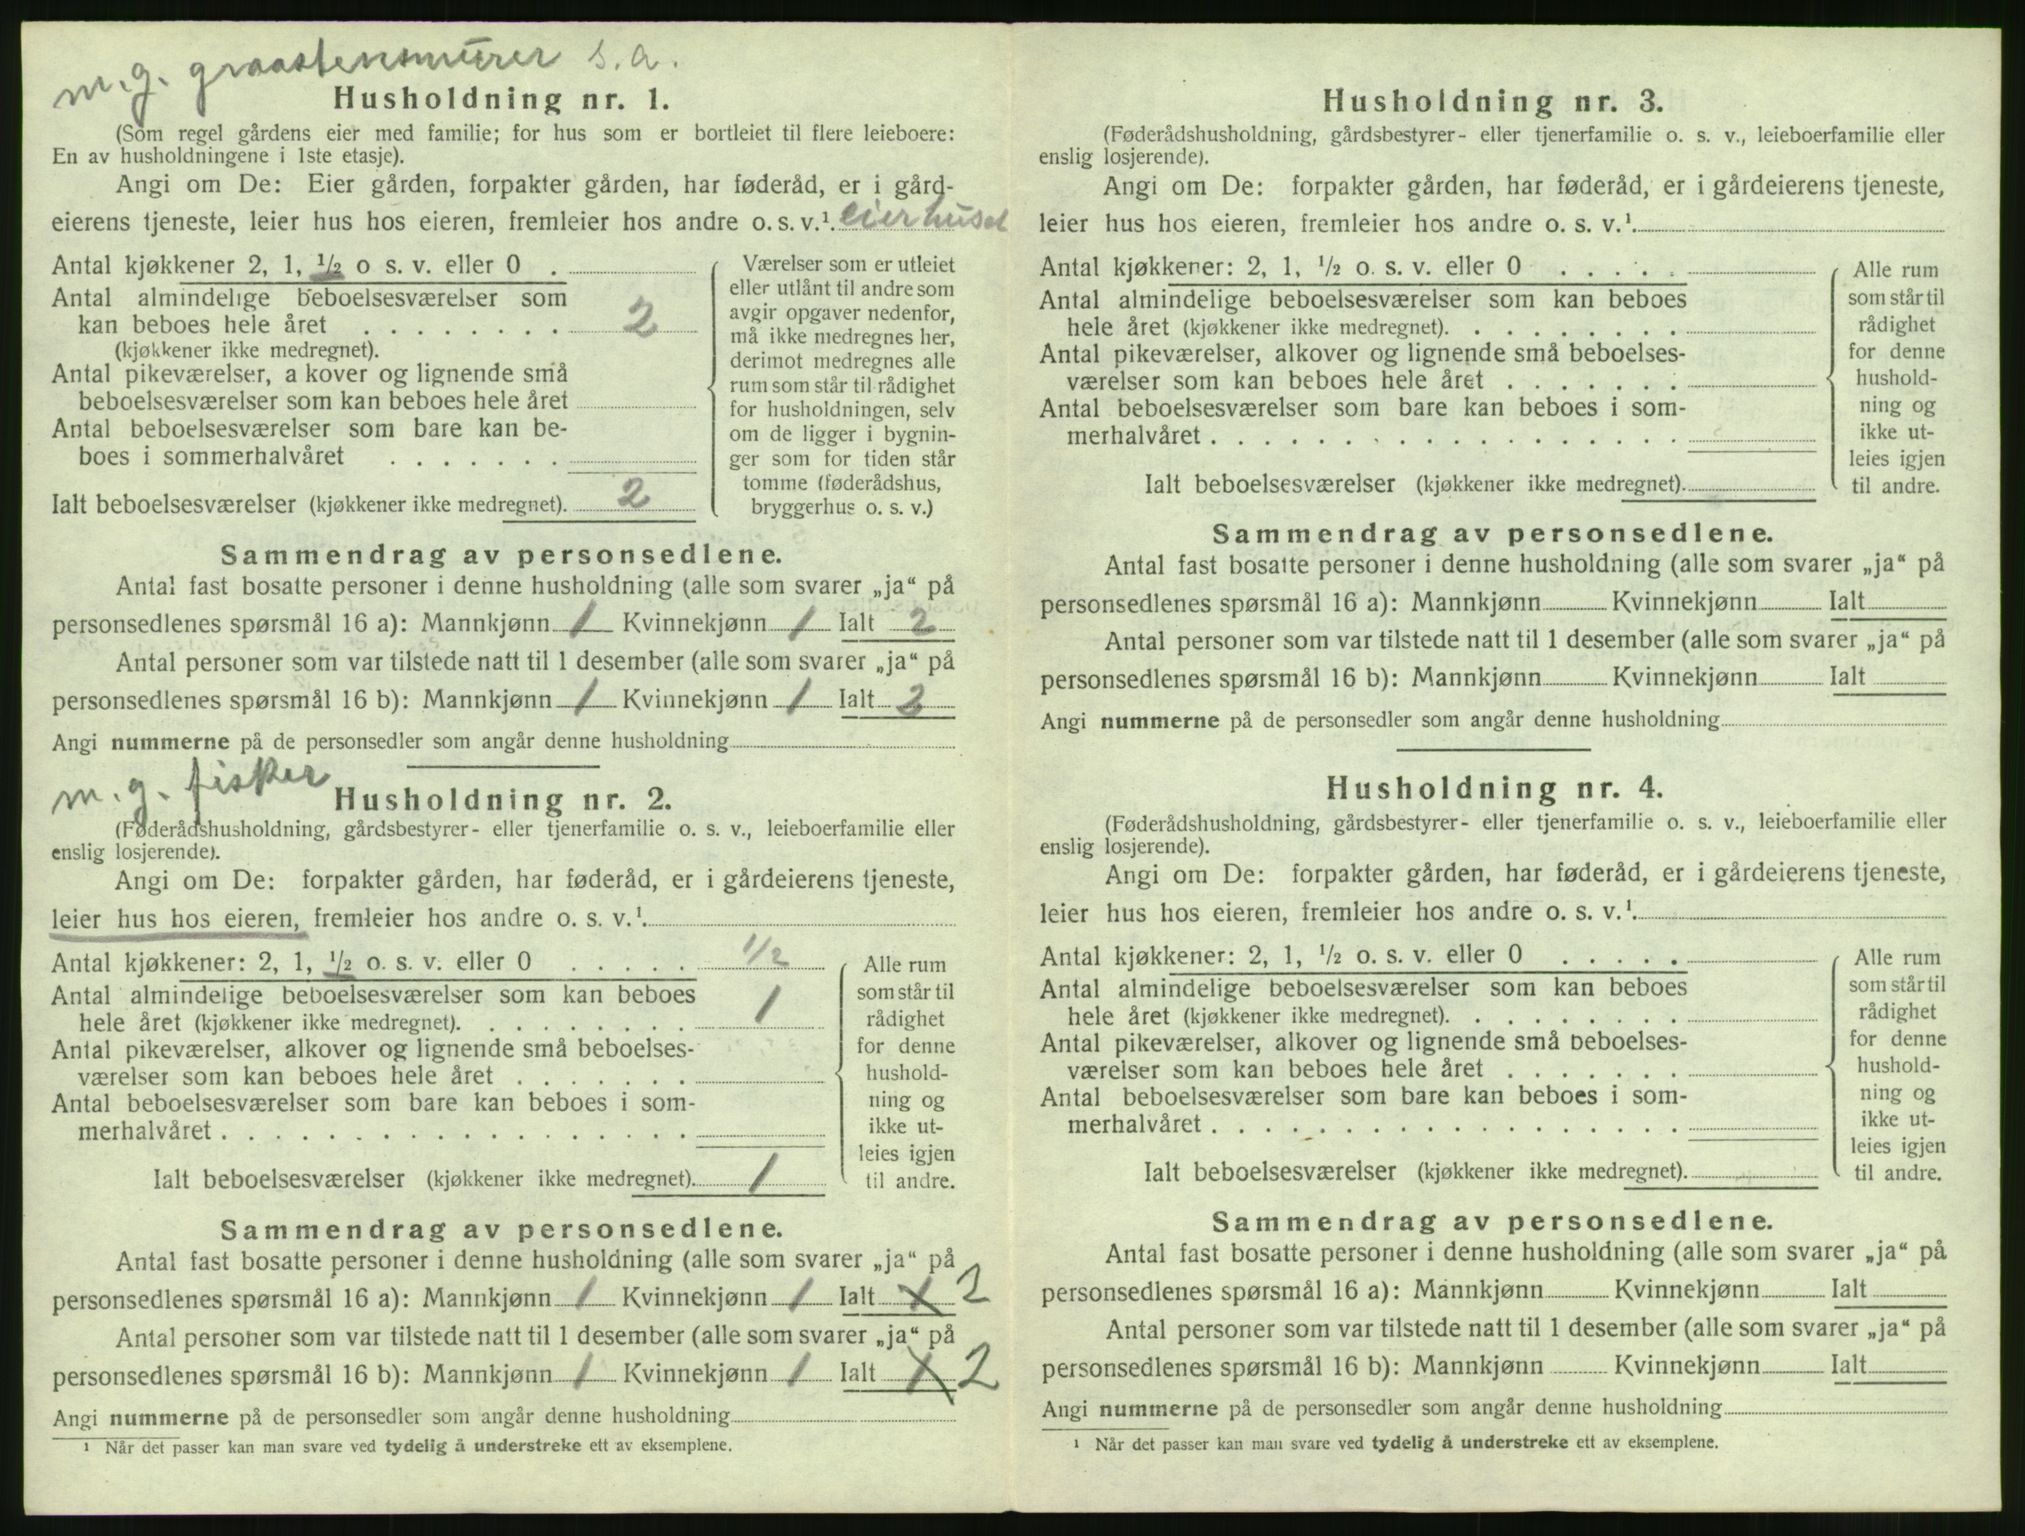 m. g. graastensmurer s. a.
Husholdning nr. 1.
(Som regel gårdens eier med familie; for hus som er bortleiet til flere leieboere:
En av husholdningene i 1ste etasje).
Angi om De: Eier gården, forpakter gården, har føderåd, er i gård-
eierens tjeneste, leier hus hos eieren, fremleier hos andre o. s. v.¹. eier huset
Antal kjøkkener 2, 1, ½ o s. v. eller 0 .
Antal almindelige beboelsesværelser som
kan beboes hele året . . . . . . . . 2
(kjøkkener ikke medregnet).
Antal pikeværelser, a kover og lignende små
beboelsesværelser som kan beboes hele året
Antal beboelsesværelser som bare kan be-
boes i sommerhalvåret . . . . . . .
Ialt beboelsesværelser (kjøkkener ikke medregnet). 2
Værelser som er utleiet
eller utlånt til andre som
avgir opgaver nedenfor,
må ikke medregnes her,
derimot medregnes alle
rum som står til rådighet
for husholdningen, selv
om de ligger i bygnin-
ger som for tiden står
tomme (føderådshus,
bryggerhus o. s. v.)
Sammendrag av personsedlene.
Antal fast bosatte personer i denne husholdning (alle som svarer „ja“ på
personsedlenes spørsmål 16 a): Mannkjønn 1 Kvinnekjønn 1 Ialt 2
Antal personer som var tilstede natt til 1 desember (alle som svarer „ja“ på
personsedlenes spørsmål 16 b): Mannkjønn 1 Kvinnekjønn 1 Ialt 2
Angi nummerne på de personsedler som angår denne husholdning
m. g. fisker
Husholdning nr. 2.
(Føderådshusholdning, gårdsbestyrer- eller tjenerfamilie o. s. v., leieboerfamilie eller
enslig losjerende).
Angi om De: forpakter gården, har føderåd, er i gårdeierens tjeneste,
leier hus hos eieren, fremleier hos andre o. s. v.¹.
Antal kjøkkener: 2, 1, ½ o. s. v. eller 0 . . . . . ½
Antal almindelige beboelsesværelser som kan beboes
hele året (kjøkkener ikke medregnet). . . . . . . . . 1
Antal pikeværelser, alkover og lignende små beboelses-
værelser som kan beboes hele året . . . . . . .
Antal beboelsesværelser som bare kan beboes i som-
merhalvåret . . . . . . . . . . . . . . . . . .
Ialt beboelsesværelser (kjøkkener ikke medregnet). 1
Alle rum
som står til
rådighet
for denne
hushold-
ning og
ikke ut-
leies igjen
til andre.
Sammendrag av personsedlene.
Antal fast bosatte personer i denne husholdning (alle som svarer „ja“ på
personsedlenes spørsmål 16 a): Mannkjønn 1 Kvinnekjønn 1 Ialt 1 2
Antal personer som var tilstede natt til 1 desember (alle som svarer „ja“ på
personsedlenes spørsmål 16 b): Mannkjønn 1 Kvinnekjønn 1 Ialt 1 2
Angi nummerne på de personsedler som angår denne husholdning
¹ Når det passer kan man svare ved tydelig å understreke ett av eksemplene.
Husholdning nr. 3.
(Føderådshusholdning, gårdsbestyrer- eller tjenerfamilie o. s. v., leieboerfamilie eller
enslig losjerende).
Angi om De: forpakter gården, har føderåd, er i gårdeierens tjeneste,
leier hus hos eieren, fremleier hos andre o. s. v.¹.
Antal kjøkkener: 2, 1, ½ o. s. v. eller 0 . . . . .
Antal almindelige beboelsesværelser som kan beboes
hele året (kjøkkener ikke medregnet). . . . . . . . .
Antal pikeværelser, alkover og lignende små beboelses-
værelser som kan beboes hele året . . . . . . .
Antal beboelsesværelser som bare kan beboes i som-
merhalvåret . . . . . . . . . . . . . . . . . .
Ialt beboelsesværelser (kjøkkener ikke medregnet).
Alle rum
som står til
rådighet
for denne
hushold-
ning og
ikke ut-
leies igjen
til andre.
Sammendrag av personsedlene.
Antal fast bosatte personer i denne husholdning (alle som svarer „ja“ på
personsedlenes spørsmål 16 a): Mannkjønn Kvinnekjønn Ialt
Antal personer som var tilstede natt til 1 desember (alle som svarer „ja“ på
personsedlenes spørsmål 16 b): Mannkjønn Kvinnekjønn Ialt
Angi nummerne på de personsedler som angår denne husholdning
Husholdning nr. 4.
(Føderådshusholdning, gårdsbestyrer- eller tjenerfamilie o. s. v., leieboerfamilie eller
enslig losjerende).
Angi om De: forpakter gården, har føderåd, er i gårdeierens tjeneste,
leier hus hos eieren, fremleier hos andre o. s. v.¹.
Antal kjøkkener: 2, 1, ½ o. s. v. eller 0 . . . . .
Antal almindelige beboelsesværelser som kan beboes
hele året (kjøkkener ikke medregnet). . . . . . . . .
Antal pikeværelser, alkover og lignende små beboelses-
værelser som kan beboes hele året . . . . . . .
Antal beboelsesværelser som bare kan beboes i som-
merhalvåret . . . . . . . . . . . . . . . . . .
Ialt beboelsesværelser (kjøkkener ikke medregnet).
Alle rum
som står til
rådighet
for denne
hushold-
ning og
ikke ut-
leies igjen
til andre.
Sammendrag av personsedlene.
Antal fast bosatte personer i denne husholdning (alle som svarer „ja“ på
personsedlenes spørsmål 16 a): Mannkjønn Kvinnekjønn Ialt
Antal personer som var tilstede natt til 1 desember (alle som svarer „ja“ på
personsedlenes spørsmål 16 b): Mannkjønn Kvinnekjønn Ialt
Angi nummerne på de personsedler som angår denne husholdning
¹ Når det passer kan man svare ved tydelig å understreke ett av eksemplene.